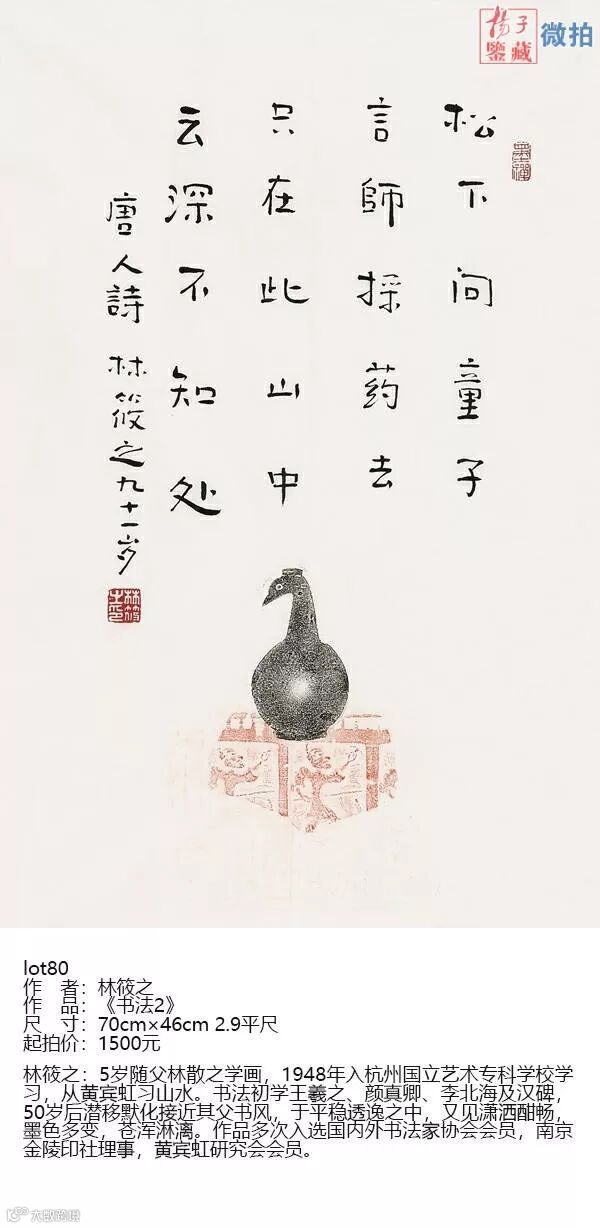 揚子
鑒藏
微拍
松下问童子
言師採药去
只在此山中
云深不知处
唐人詩 林筱之九十一岁
林筱之印
lot80
作 者：林筱之
作 品：《书法2》
尺 寸：70cm×46cm 2.9平尺
起拍价：1500元
林筱之：5岁随父林散之学画，1948年入杭州国立艺术专科学校学
习，从黄宾虹习山水。书法初学王羲之、颜真卿、李北海及汉碑，
50岁后潜移默化接近其父书风，于平稳透逸之中，又见潇洒酣畅，
墨色多变，苍浑淋漓。作品多次入选国内外书法家协会会员，南京
金陵印社理事，黄宾虹研究会会员。
大数跨境